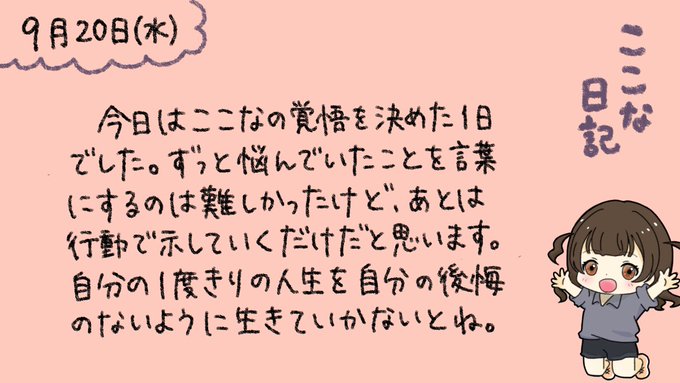 9月20日(水)
ここな
日記
今日はここなの覚悟を決めた1日
でした。ずっと悩んでいたことを言葉
にするのは難しかったけど、あとは
行動で示していくだけだと思います。
自分の1度きりの人生を自分の後悔
のないように生きていかないとね。